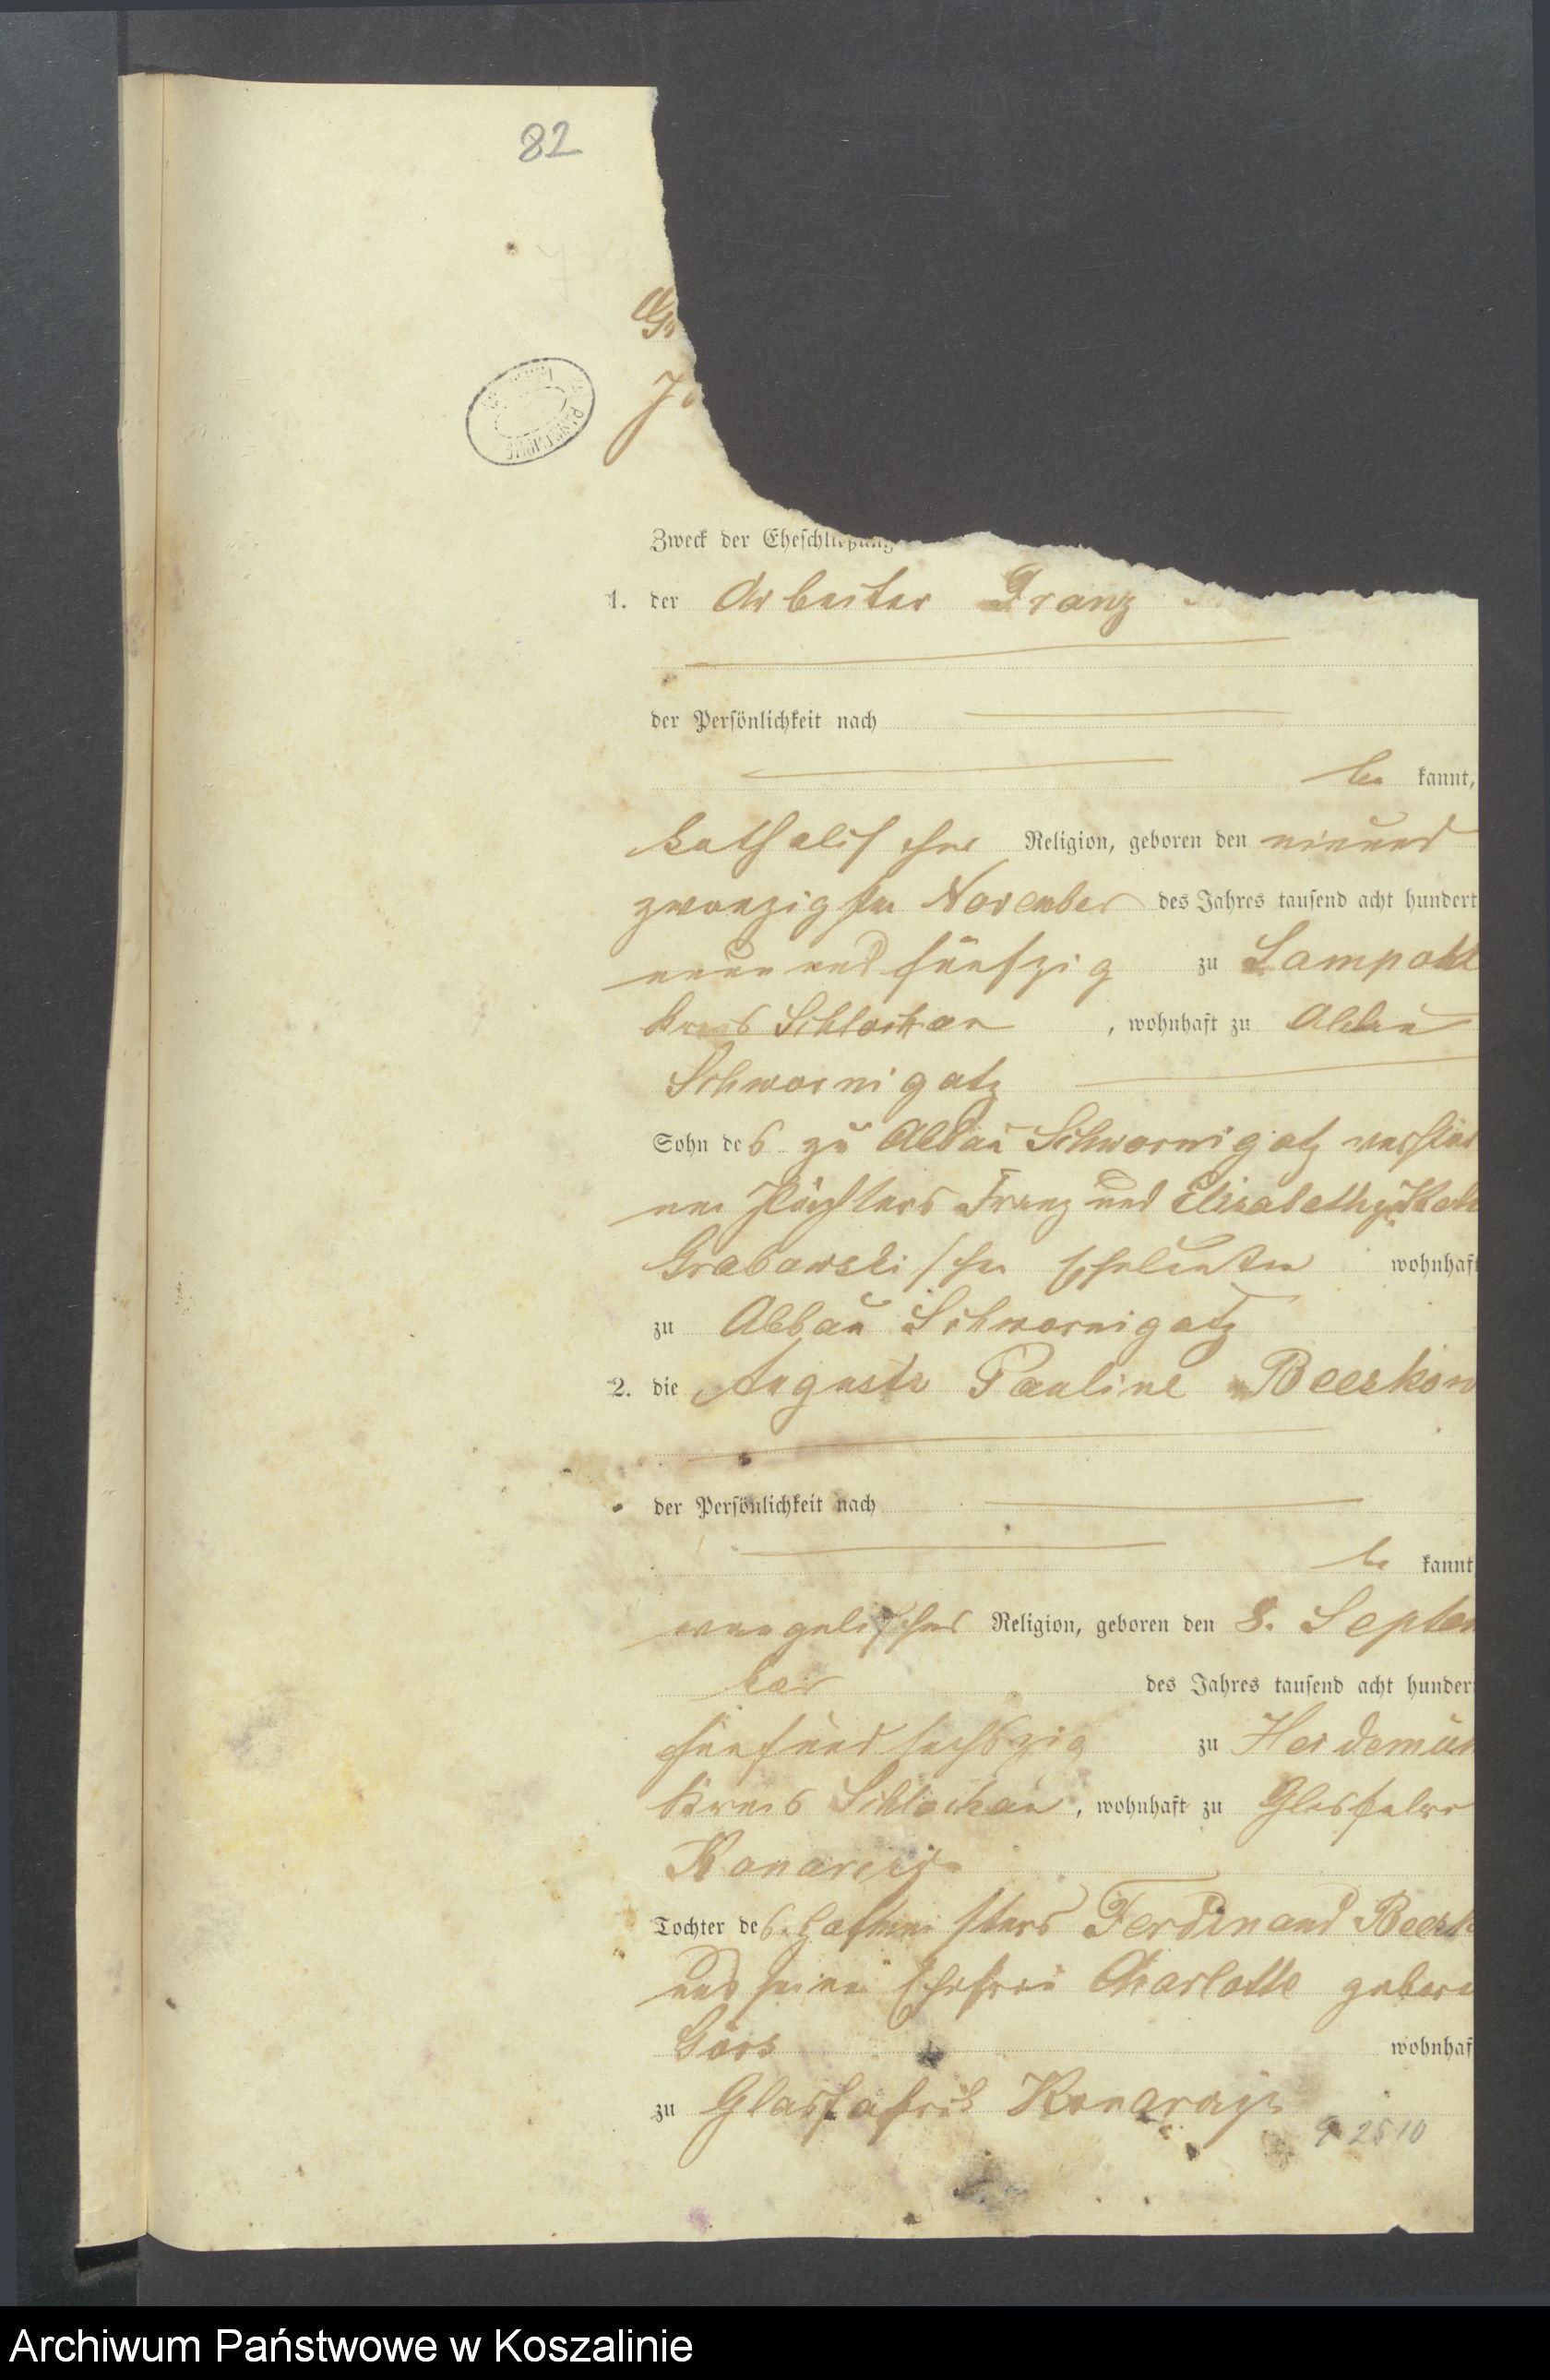 82
Zweck der Eheschließung
1. der Arbeiter Franz
der Persönlichkeit nach
be kannt,
katholischer Religion, geboren den einund
zwanzigsten November des Jahres tausend acht hundert
neun und fünfzig zu Lampohl
Kreis Schlochau, wohnhaft zu Abbau
Schwornigatz
Sohn des zu Abbau Schwornigatz verstor
nen Pächters Franz und Elisabeth
Grabowski schen Eheleuten wohnhaft
zu Abbau Schwornigatz
2. die Auguste Pauline Beeskow
der Persönlichkeit nach
be kannt
evangelischer Religion, geboren den 8. Septem
ber des Jahres tausend acht hunder
fünf und sechszig zu Heidemüh
Kreis Schlochau, wohnhaft zu Glasfabri
Konarczyn
Tochter des Hofmeisters Ferdinand Beesk
und seiner Ehefrau Charlotte gebore
wohnhaf
zu Glasfabrik
2510
Archiwum Państwowe w Koszalinie